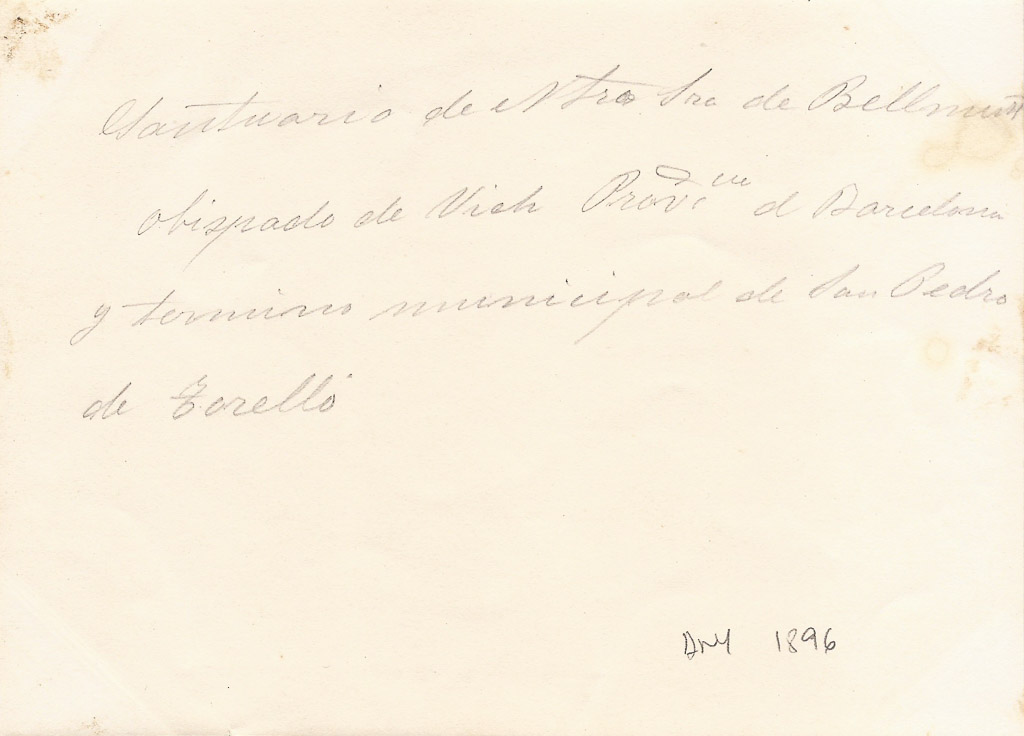 Santuario de Ntra Sra de Bellmunt
obispado de Vich Prov.cia d Barcelona
y termino municipal de San Pedro
de Torelló
Any 1896